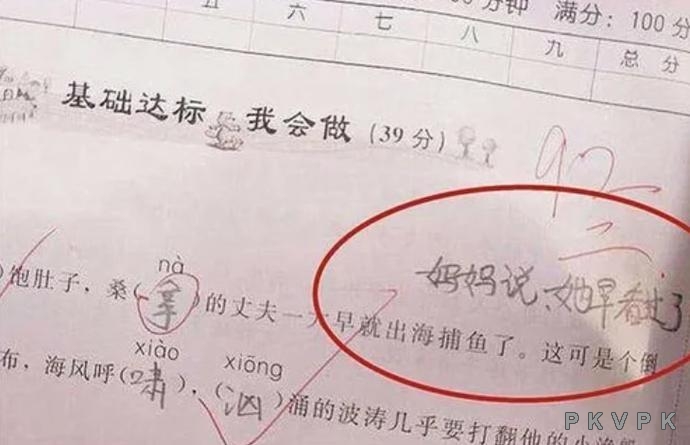 分钟 满分：100分
五 六 七 八 九 总分
基础达标 我会做（39分）
92
妈妈说、她早看过了
nà
饱肚子，桑（拿）的丈夫一大早就出海捕鱼了。这可是个倒
xiào xiōng
布，海风呼（啸），（汹）涌的波涛几乎要打翻他的小渔船
PKVPK